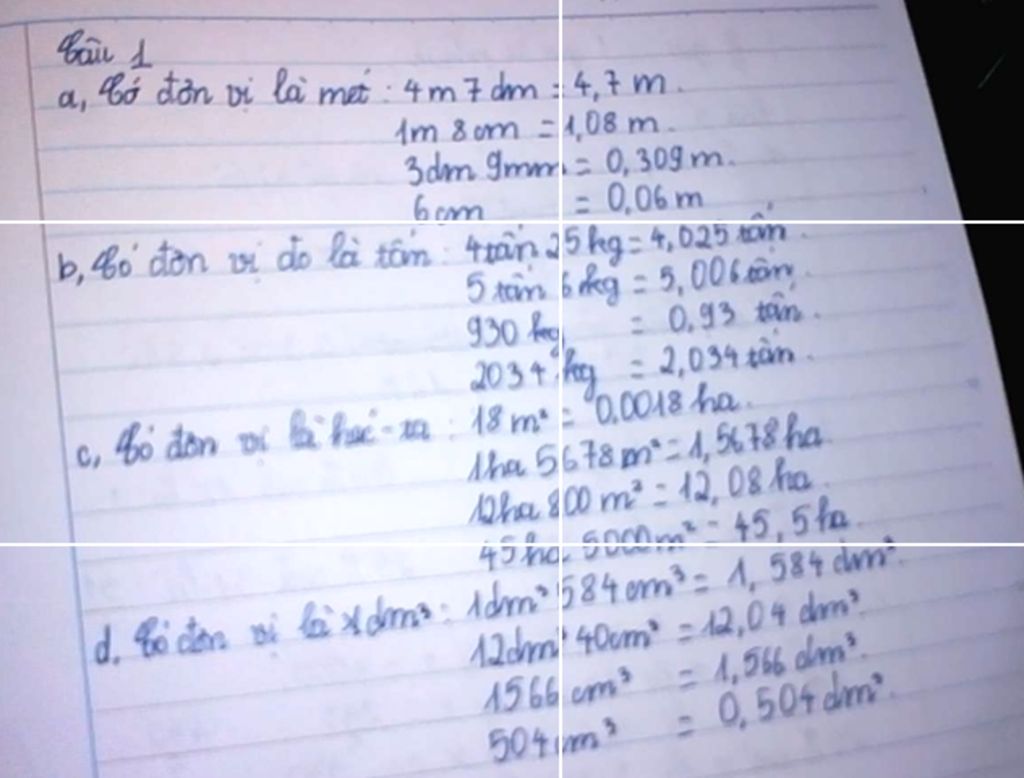 Câu 1
a, Có đơn vị là mét: 4m 7dm = 4,7 m.
1m 8cm = 1,08 m.
3dm 9mm = 0,309 m.
6cm = 0,06 m
b, Có đơn vị đo là tấn: 4 tấn 25 kg = 4,025 tấn.
5 tấn 6 kg = 5,006 tấn.
930 kg = 0,93 tấn.
2034 kg = 2,034 tấn.
c, Có đơn vị là héc-ta: 18 m² = 0,0018 ha.
1ha 5678 m² = 1,5678 ha
12ha 800 m² = 12,08 ha.
45ha 5000 m² = 45,5 ha.
d. Có đơn vị là dm³: 1dm³ 584cm³ = 1,584 dm³.
12dm³ 40cm³ = 12,04 dm³.
1566 cm³ = 1,566 dm³.
504 cm³ = 0,504 dm³.